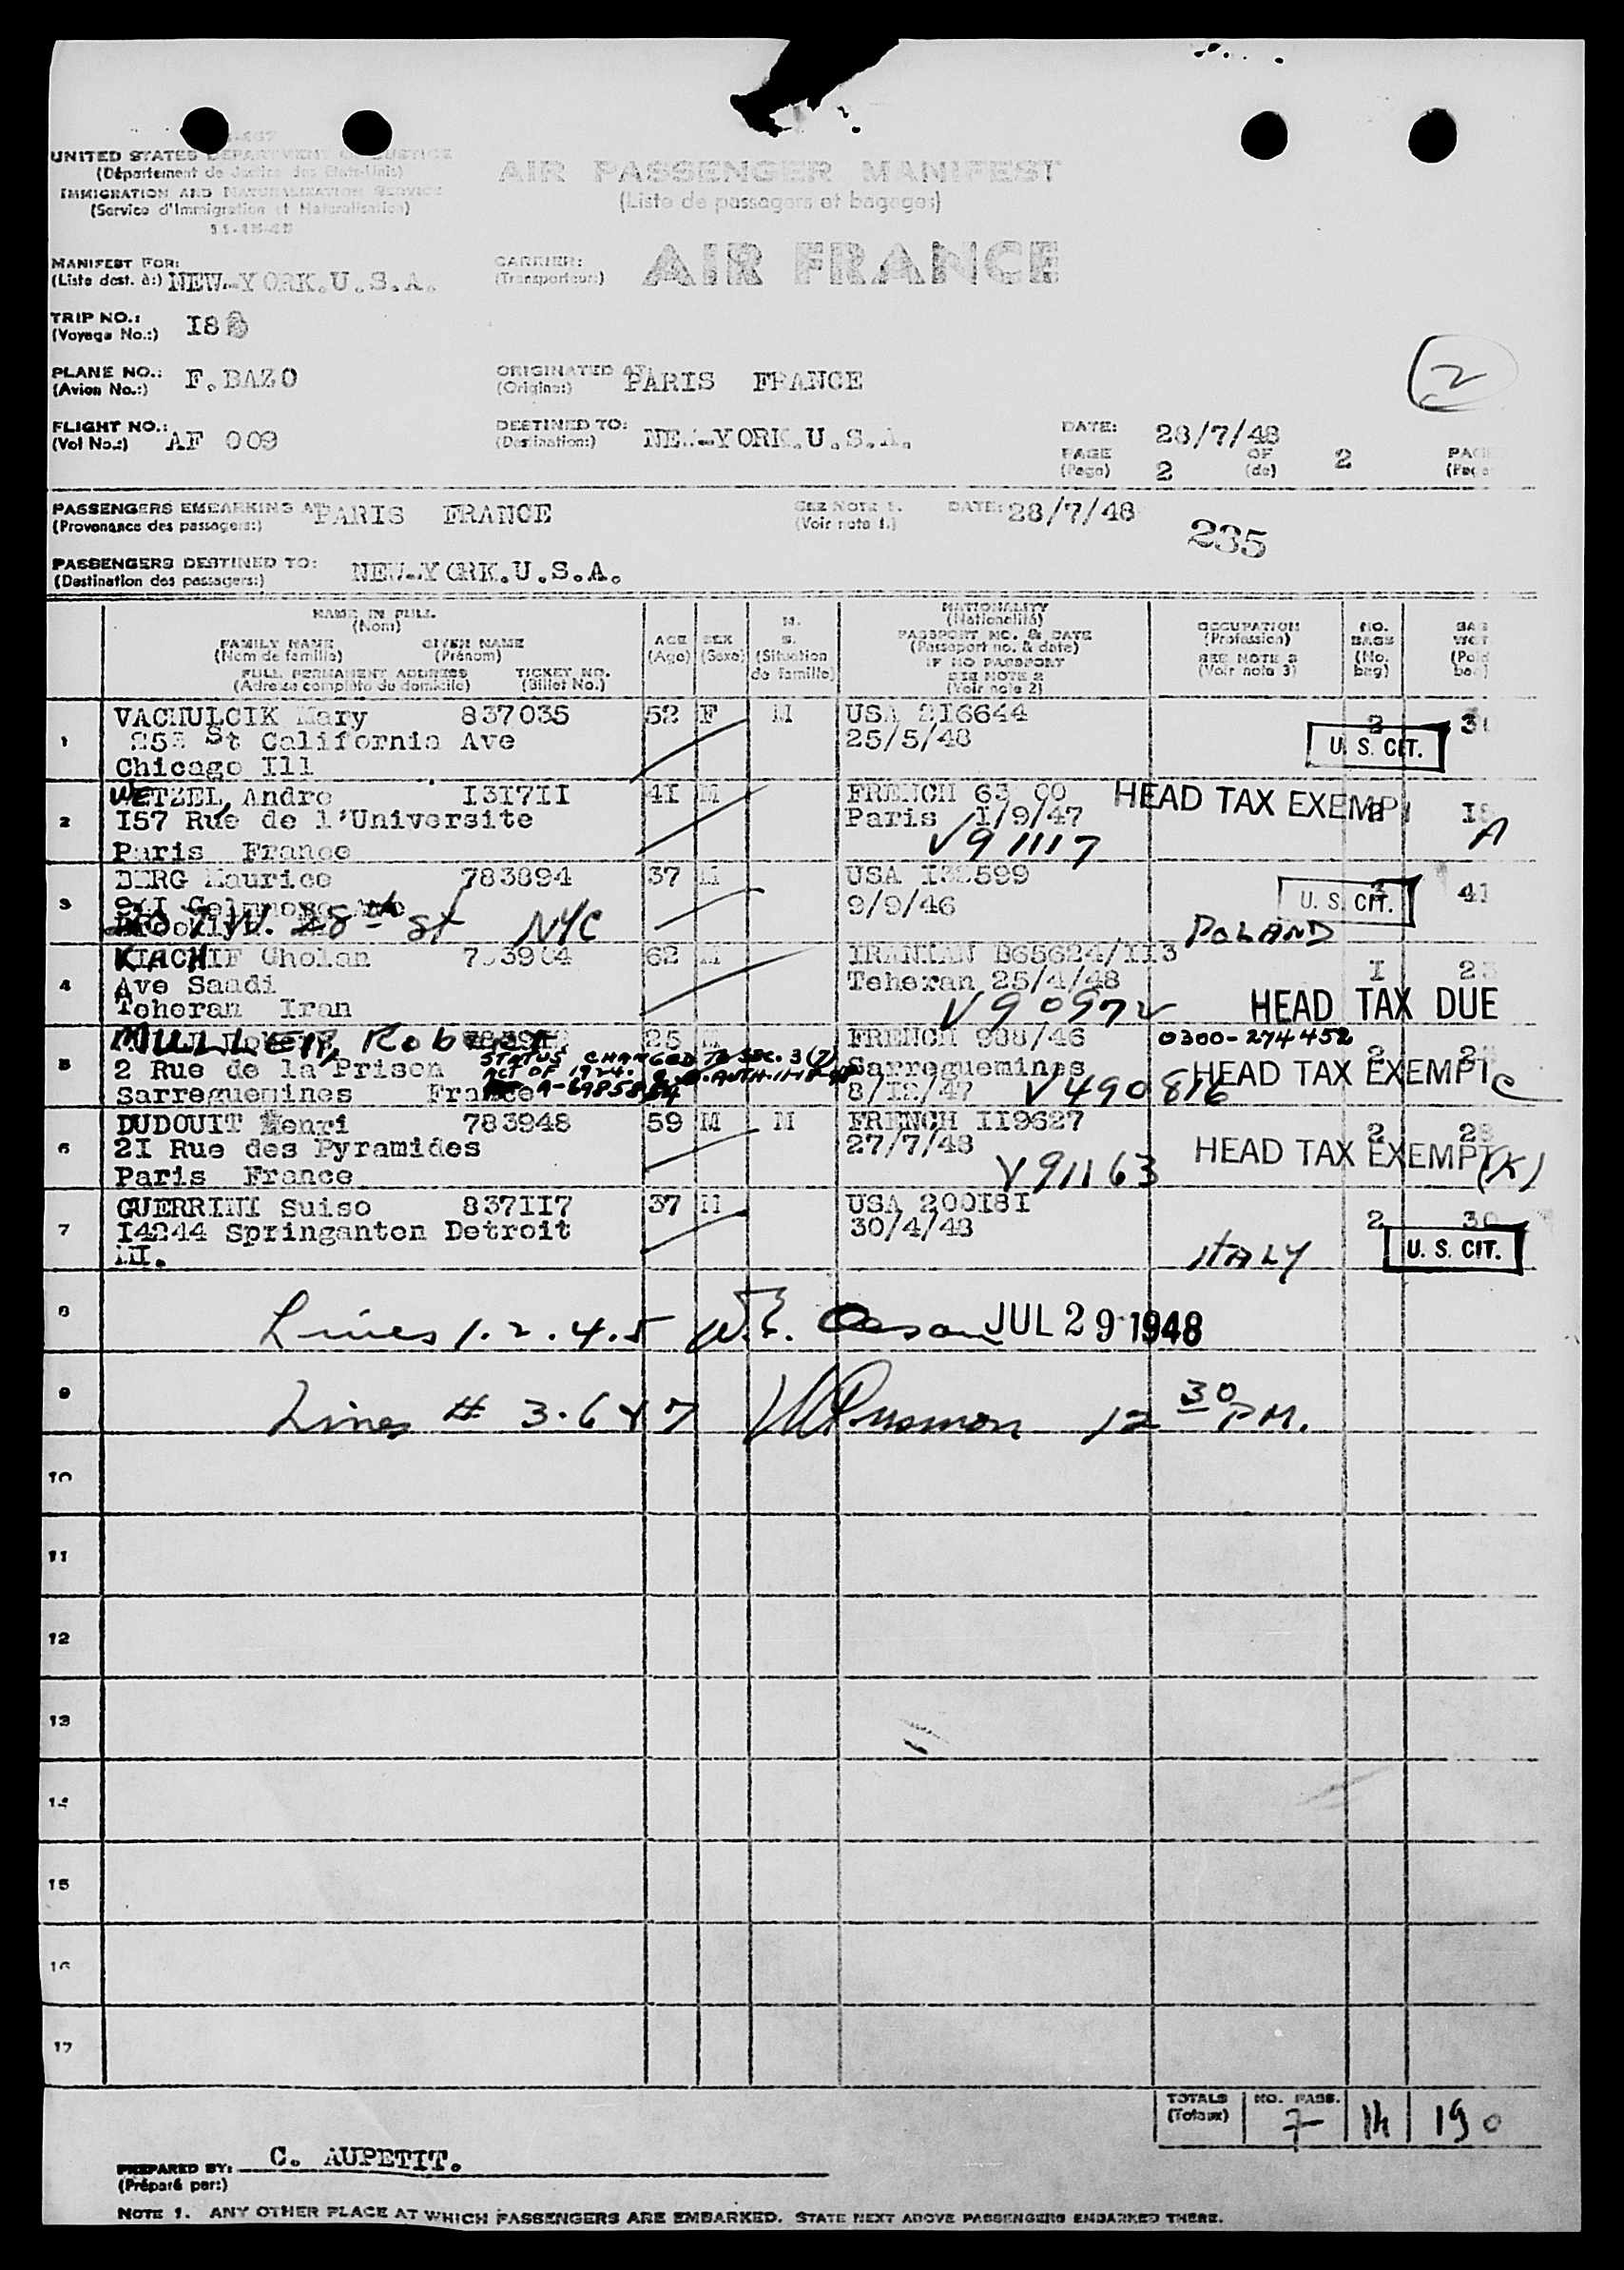 UNITED STATES DEPARTMENT OF JUSTICE
(Département de Justice des Etats-Unis)
IMMIGRATION AND NATURALIZATION SERVICE
(Service d'Immigration et Naturalisation)
AIR PASSENGER MANIFEST
(Liste de passagers et bagages)
MANIFEST FOR:
(Liste dest. à:) NEW-YORK.U.S.A.
CARRIER:
(Transporteur:) AIR FRANCE
TRIP NO.:
(Voyage No.:) I88
PLANE NO.:
(Avion No.:) F.BAZO
ORIGINATED AT
(Origine:) PARIS FRANCE
2
FLIGHT NO.:
(Vol No.:) AF 009
DESTINED TO:
(Destination:) NEW-YORK.U.S.A.
DATE: 28/7/48
PAGE 2 OF 2 PAG
(Page) (de) (Page
PASSENGERS EMBARKING AT PARIS FRANCE
(Provenance des passagers:)
SEE NOTE 1. DATE: 28/7/48
(Voir note 1.)
235
PASSENGERS DESTINED TO:
(Destination des passagers:) NEW-YORK.U.S.A.
NAME IN FULL
(Nom)
FAMILY NAME GIVEN NAME
(Nom de famille) (Prénom)
FULL PERMANENT ADDRESS TICKET NO.
(Adresse complète du domicile) (Billet No.)
AGE
(Age)
SEX
(Sexe)
M.
S.
(Situation
de famille)
NATIONALITY
(Nationalité)
PASSPORT NO. & DATE
(Passeport no. & date)
IF NO PASSPORT
SEE NOTE 2
(Voir note 2)
OCCUPATION
(Profession)
SEE NOTE 3
(Voir note 3)
NO.
BAGS
(No.
bag)
BAG
WGT
(Poid
bag)
1 VACHULCIK Mary 837035 52 F M USA 2I6644 2
St California Ave 25/5/48 U. S. CIT.
Chicago Ill
2 WETZEL, Andre I3I7II 4I M FRENCH 63 CO HEAD TAX EXEMPT
I57 Rue de l'Universite Paris I/9/47
Paris France V91117 A
3 BERG Maurice 783894 37 M USA 599 41
9/9/46 U. S. CIT.
7 W. 28th St NYC POLAND
4 KIACHIF Gholan 62 M IRANIAN B65624/II3 I
Ave Saadi Teheran 25/4/48
Teheran Iran V90972 HEAD TAX DUE
5 MULLER, Robert 25 M FRENCH 988/46 0300-274452 2
STATUS CHANGED TO SEC. 3(7)
2 Rue de la Prison ACT OF 1924. Sarreguemines HEAD TAX EXEMPT C
Sarreguemines France 8/I2/47 V490816
6 DUDOUIT Henri 783948 59 M M FRENCH II9627 2
2I Rue des Pyramides 27/7/48 HEAD TAX EXEMPT
Paris France V91163 (K)
7 GUERRINI Suiso 837II7 37 M USA 200I8I 2 30
I4244 Springanten Detroit 30/4/48
MI. ITALY U. S. CIT.
8 Lines 1.2.4.5 JUL 29 1948
9 Lines # 3.6 & 7 12 30 P.M.
10
11
12
13
14
15
16
17
TOTALS NO. PASS.
(Totaux) 7 14 190
PREPARED BY: C. AUPETIT.
(Préparé par:)
NOTE 1. ANY OTHER PLACE AT WHICH PASSENGERS ARE EMBARKED. STATE NEXT ABOVE PASSENGERS EMBARKED THERE.